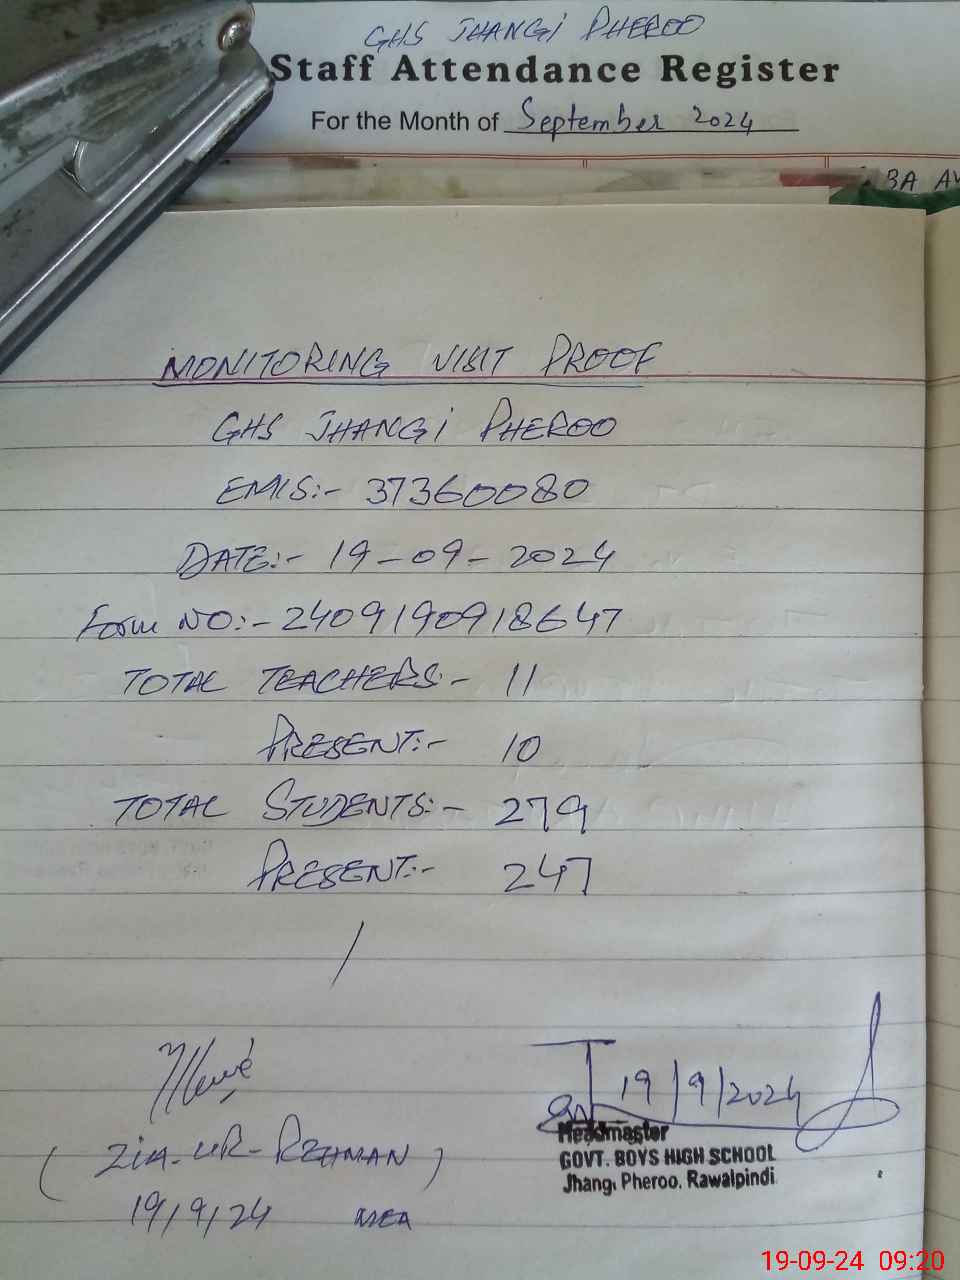 GHS JHANGi PHEROO
Staff Attendance Register
For the Month of September 2024
BA AV
MONITORING VISIT PROOF
GHS JHANGi PHEROO
EMIS:- 37360080
DATE:- 19-09-2024
Form NO:- 2409190918647
TOTAL TEACHERS:- 11
PRESENT:- 10
TOTAL STUDENTS:- 279
PRESENT:- 247
19/9/2024
Headmaster
GOVT. BOYS HIGH SCHOOL
Jhangi Pheroo. Rawalpindi
(ZIA-UR-REHMAN)
19/9/24 MEA
19-09-24 09:20